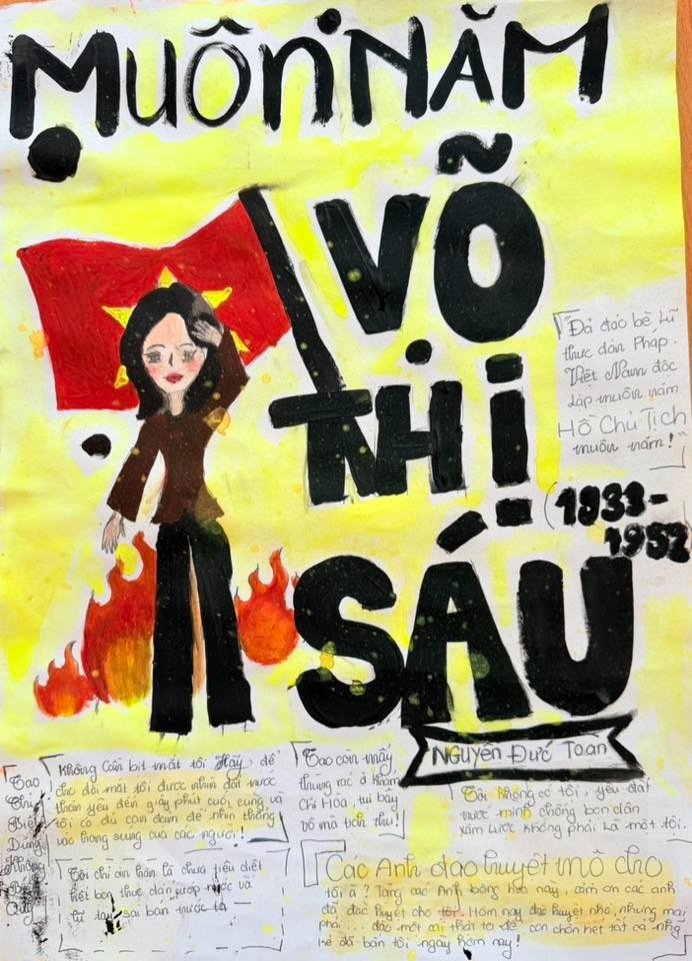 MUÔN NĂM
VÕ
THỊ
SÁU
(1933-
1952
"Đả đảo bè lũ
thực dân Pháp.
Việt Nam độc
Lập muôn năm
Hồ Chủ Tịch
muôn năm!"
NGUYỄN ĐỨC TOÀN
Tao
Chỉ
Biết
Đứng
Không
Quỳ
Không cần bịt mắt tôi Hãy để
cho đôi mắt tôi được nhìn đất nước
thân yêu đến giây phút cuối cùng và
tôi có đủ can đảm để nhìn thẳng
vào họng súng của các người!
Tôi chỉ ân hận là chưa tiêu diệt
hết bọn thực dân cướp nước và
tay sai bán nước
Tao còn mấy
thùng rác ở Khám
Chí Hòa, tụi bây
vô mà tịch thu!
Tôi không có tội, yêu đất
nước mình chống bọn dân
xâm lược không phải là một tội.
Các Anh đào huyệt mồ cho
tôi à? Tặng các Anh bông hoa này, cảm ơn các anh
đã đào huyệt cho tôi. Hôm nay đào huyệt nhỏ, nhưng mai
phải... đào một cái thật to để còn chôn hết tất cả nhg
kẻ đã bắn tôi ngày hôm nay!